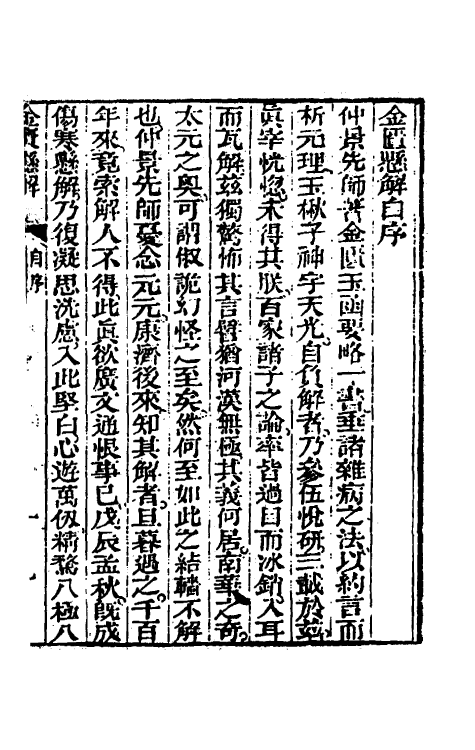 金匱懸解自序
仲景先師著金匱玉函要略一書垂諸雜病之法以約言而
析元理玉楸子神宇天光自負解者乃參伍悅研三載於茲
眞宰恍惚未得其朕百家諸子之論率皆過目而冰銷入耳
而瓦解茲獨驚怖其言譬猶河漢無極其義何居南華之奇
太元之奧可謂俶詭幻怪之至矣然何至如此之結轖不解
也仲景先師憂念元元康濟後來知其解者旦暮遇之千百
年來竟索解人不得此眞欲廣文通恨事已戊辰孟秋旣成
傷寒懸解乃復凝思洗慮入此堅白心遊萬仞精騖八極八
金匱懸解
自序